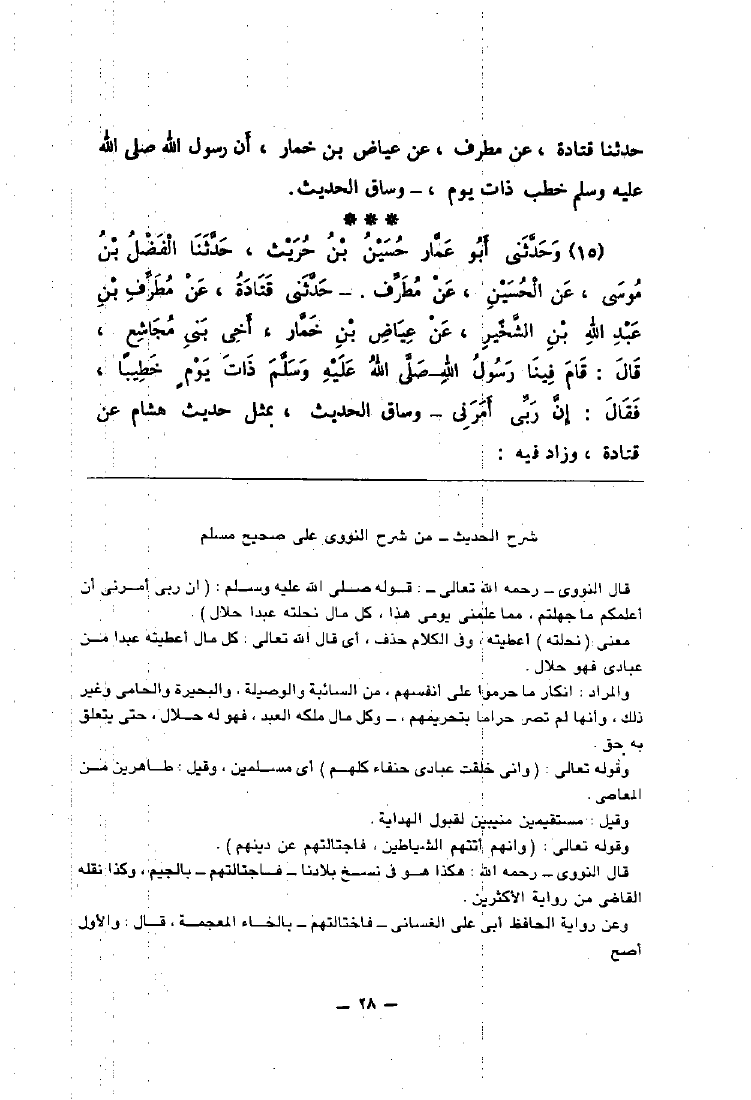 حدثنا قتادة ، عن مطرف ، عن عياض بن خمار ، أن رسول الله صلى الله
عليه وسلم خطب ذات يوم ، – وساق الحديث.
***
(١٥) وَحَدَّثَنِى أَبُو عَمَّار حُسَيْنُ بْنُ حُرَيْث ، حَدَّثَنَا الْفَضْلُ بْنُ
مُوسَى ، عَن الْحُسَيْنِ ، عَنْ مُطَرِّف . – حَدَّثَنِى قَتَادَةُ ، عَنْ مُطَرِّفِ بْنِ
عَبْدِ اللهِ بْنِ الشِّخِّيرِ ، عَنْ عِيَاضِ بْنِ خَمَّار ، أَخِى بَنِى مُجَاشِعٍ ،
قَالَ : قَامَ فِينَا رَسُولُ اللهِ–صَلَّى اللهُ عَلَيْهِ وَسَلَّمَ ذَاتَ يَوْمٍ خَطِيبًا ،
فَقَالَ : إِنَّ رَبِّى أَمَرَنِى – وساق الحديث ، بمثل حديث هشام عن
قتادة ، وزاد فيه :
شرح الحديث – من شرح النووى على صحيح مسلم
قال النووى – رحمه الله تعالى – : قوله صلى الله عليه وسلم : ( ان ربى أمرنى أن
أعلمكم ما جهلتم ، مما علمنى يومى هذا ، كل مال نحلته عبدا حلال ) .
معنى ( نحلته ) أعطيته ، وفى الكلام حذف ، أى قال الله تعالى : كل مال أعطيته عبدا من
عبادى فهو حلال .
والمراد : انكار ما حرموا على أنفسهم ، من السائبة والوصيلة ، والبحيرة والحامى وغير
ذلك ، وأنها لم تصر حراما بتحريمهم ، – وكل مال ملكه العبد ، فهو له حلال ، حتى يتعلق
به حق .
وقوله تعالى : ( وانى خلقت عبادى حنفاء كلهم ) أى مسلمين ، وقيل : طاهرين من
المعاصى .
وقيل : مستقيمين منيبين لقبول الهداية .
وقوله تعالى : ( وانهم أتتهم الشياطين ، فاجتالتهم عن دينهم ) .
قال النووى – رحمه الله : هكذا هو فى نسخ بلادنا – فاجتالتهم – بالجيم ، وكذا نقله
القاضى من رواية الأكثرين .
وعن رواية الحافظ أبى على الغسانى – فاختالتهم – بالخاء المعجمة ، قال : والأول
أصح
– ٢٨ –